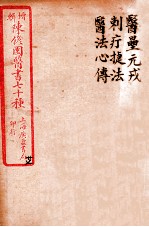 醫壘元戎
刺疔捷法
醫法心傳
增輯
陳修園醫書七十種
上海
印行